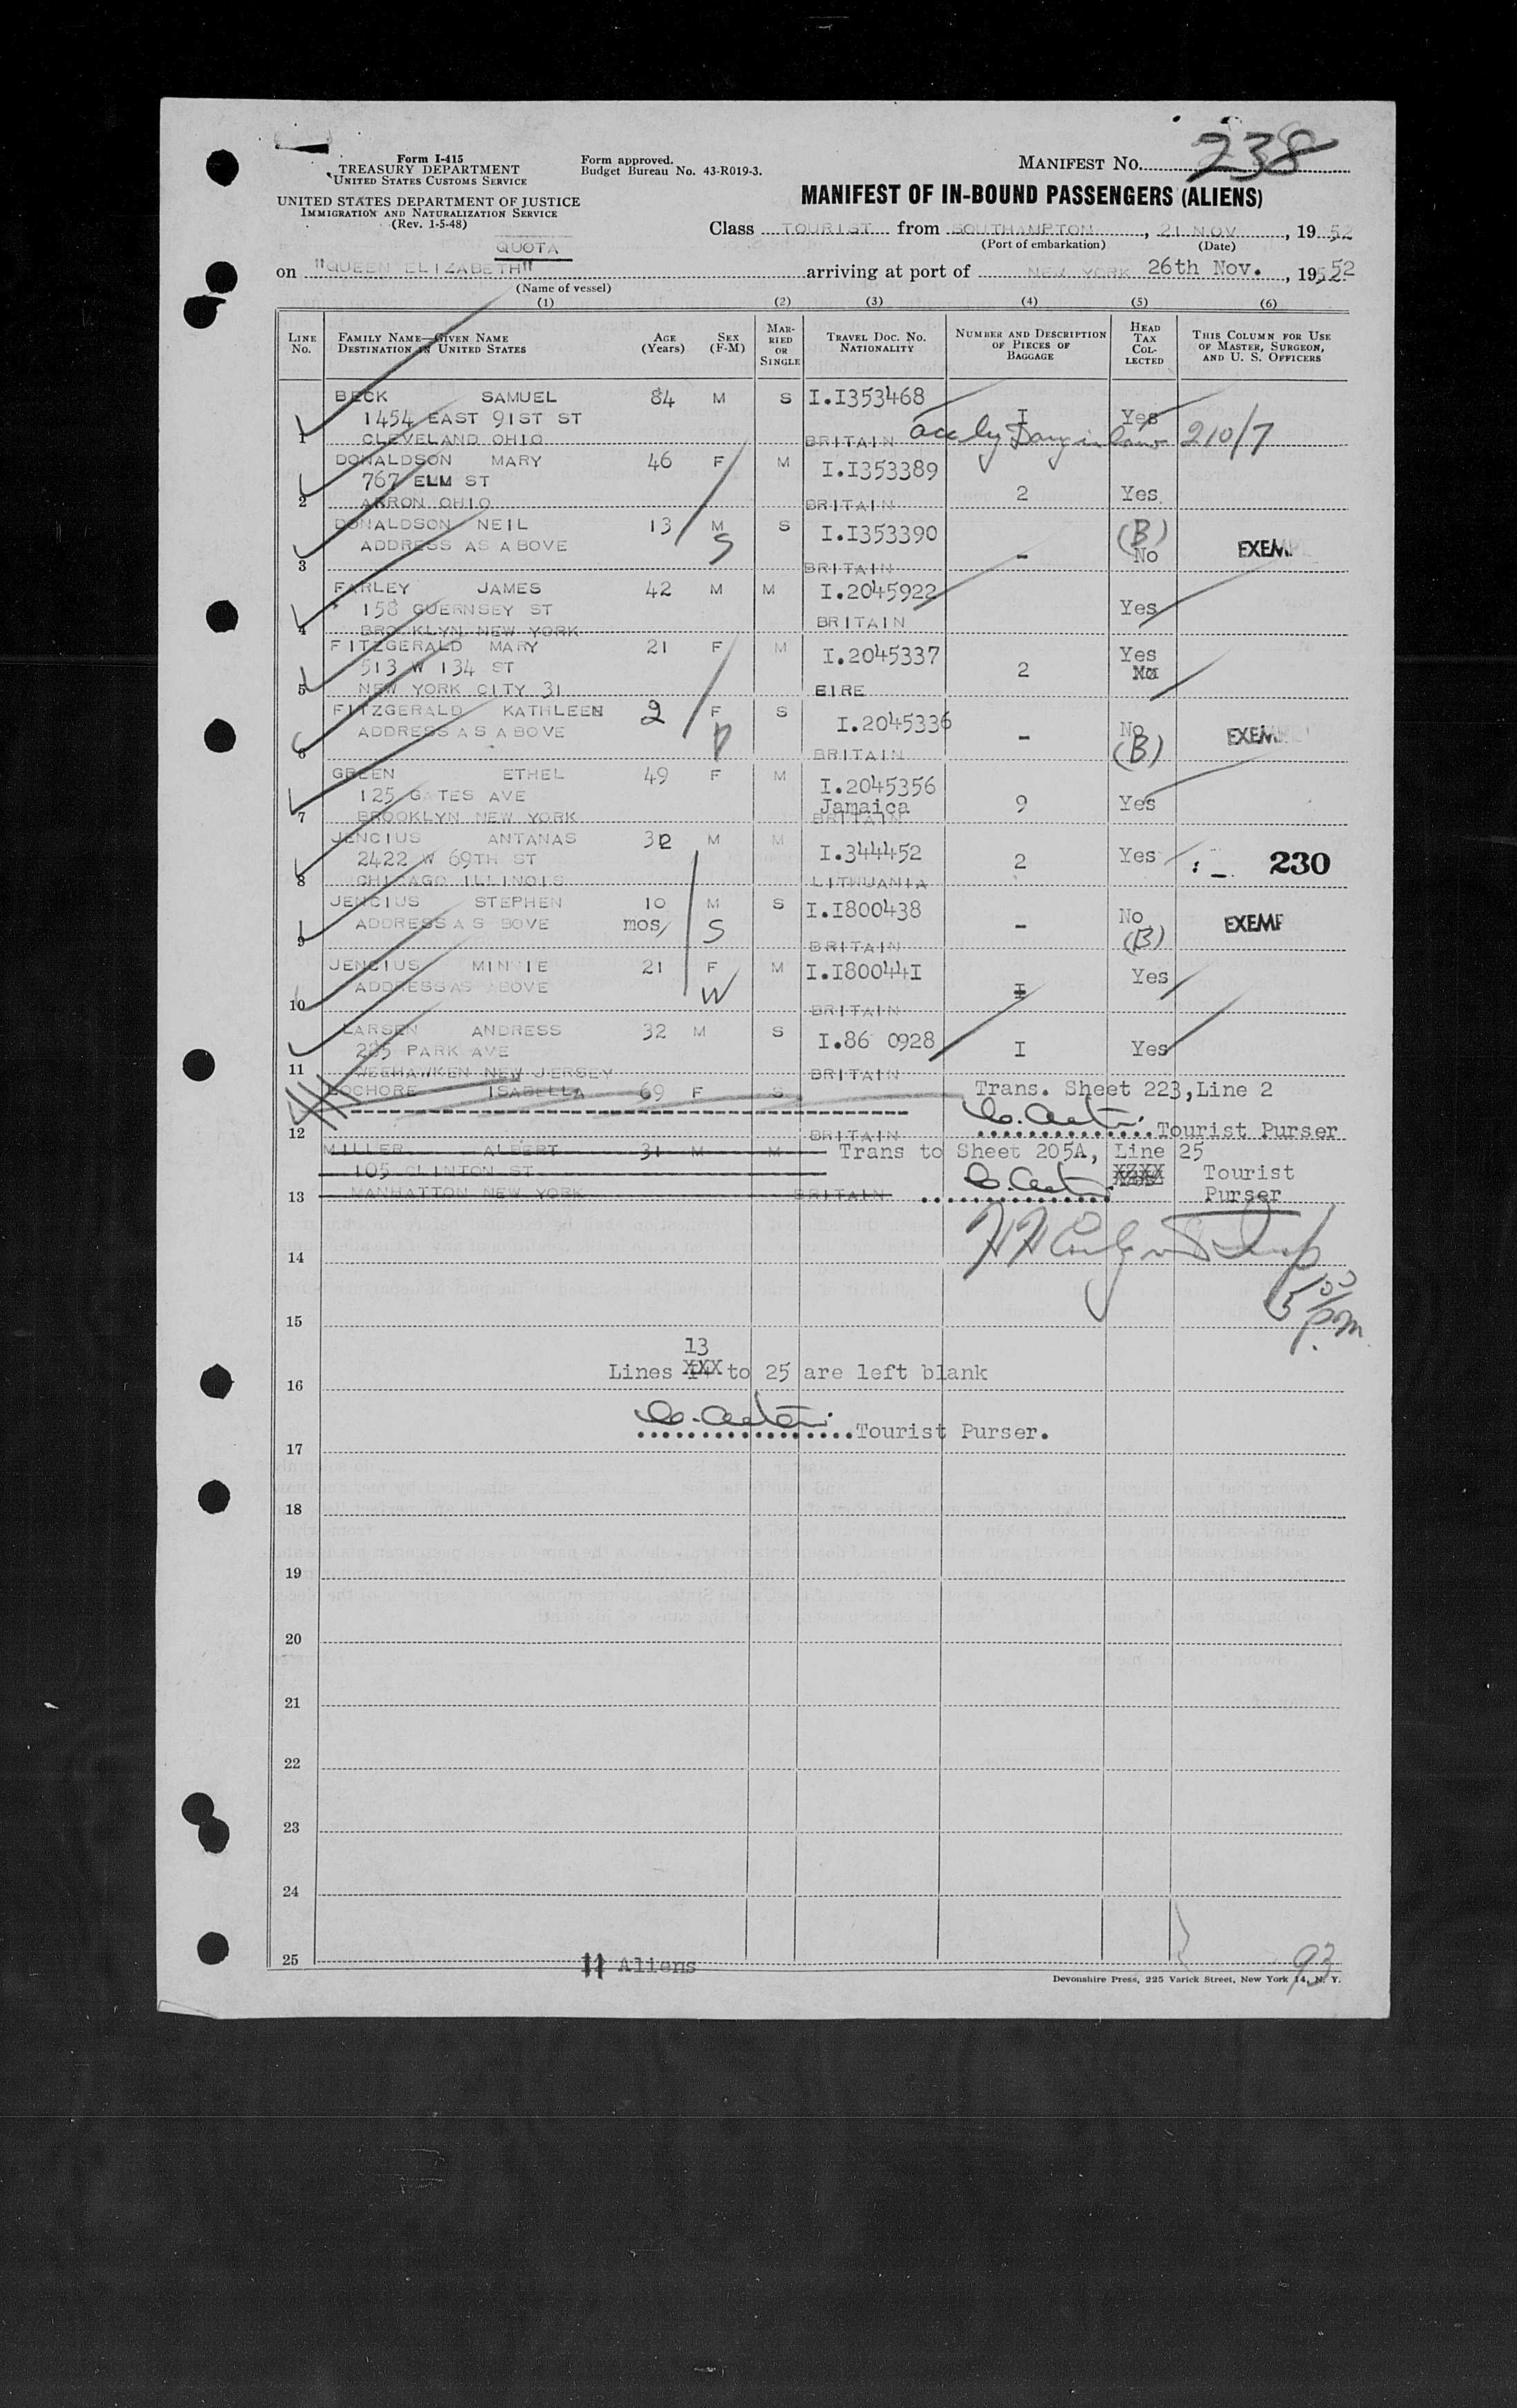 238
Form I-415
TREASURY DEPARTMENT
UNITED STATES CUSTOMS SERVICE
Form approved.
Budget Bureau No. 43-R019-3.
MANIFEST NO.
UNITED STATES DEPARTMENT OF JUSTICE
IMMIGRATION AND NATURALIZATION SERVICE
(Rev. 1-5-48)
MANIFEST OF IN-BOUND PASSENGERS (ALIENS)
Class TOURIST from SOUTHAMPTON, 21 NOV, 19 52
(Port of embarkation) (Date)
QUOTA
on "QUEEN ELIZABETH" arriving at port of NEW YORK 26th Nov., 1952
(Name of vessel)
(1) (2) (3) (4) (5) (6)
LINE NO. FAMILY NAME—GIVEN NAME DESTINATION IN UNITED STATES AGE (Years) SEX (F-M) MARRIED OR SINGLE TRAVEL DOC. NO. NATIONALITY NUMBER AND DESCRIPTION OF PIECES OF BAGGAGE HEAD TAX COLLECTED THIS COLUMN FOR USE OF MASTER, SURGEON, AND U. S. OFFICERS
BECK SAMUEL 84 M S I.I353468
1454 EAST 91ST ST I Yes
1 CLEVELAND OHIO BRITAIN 210/7
DONALDSON MARY 46 F M I.I353389
767 ELM ST 2 Yes
2 AKRON OHIO BRITAIN
DONALDSON NEIL 13 M S I.I353390 (B)
ADDRESS AS ABOVE S - No EXEMP
3 BRITAIN
FARLEY JAMES 42 M M I.2045922
158 GUERNSEY ST Yes
4 BROOKLYN NEW YORK BRITAIN
FITZGERALD MARY 21 F M I.2045337 Yes
513 W 134 ST 2 No
5 NEW YORK CITY 31 EIRE
FITZGERALD KATHLEEN 2 F S I.2045336 No
ADDRESS AS ABOVE - (B) EXEM
6 BRITAIN
GREEN ETHEL 49 F M I.2045356
125 GATES AVE Jamaica 9 Yes
7 BROOKLYN NEW YORK BRITAIN
JENCIUS ANTANAS 32 M M I.344452
2422 W 69TH ST 2 Yes 230
8 CHICAGO ILLINOIS LITHUANIA
JENCIUS STEPHEN 10 M S I.I800438 No
ADDRESS AS BOVE mos S - (B) EXEMP
9 BRITAIN
JENCIUS MINNIE 21 F M I.I80044I Yes
ADDRESS AS ABOVE W I
10 BRITAIN
LARSEN ANDRESS 32 M S I.86 0928
285 PARK AVE I Yes
11 WEEHAWKEN NEW JERSEY BRITAIN
LOCHORE ISABELLA 69 F S Trans. Sheet 223, Line 2
12 BRITAIN Tourist Purser
MILLER ALBERT 31 M M Trans to Sheet 205A, Line 25
105 CLINTON ST Tourist
13 MANHATTON NEW YORK BRITAIN Purser
14
5 00 p.m
15
13
Lines XXX to 25 are left blank
16
Tourist Purser.
17
18
19
20
21
22
23
24
25
11 Aliens
93
Devonshire Press, 225 Varick Street, New York 14, N. Y.